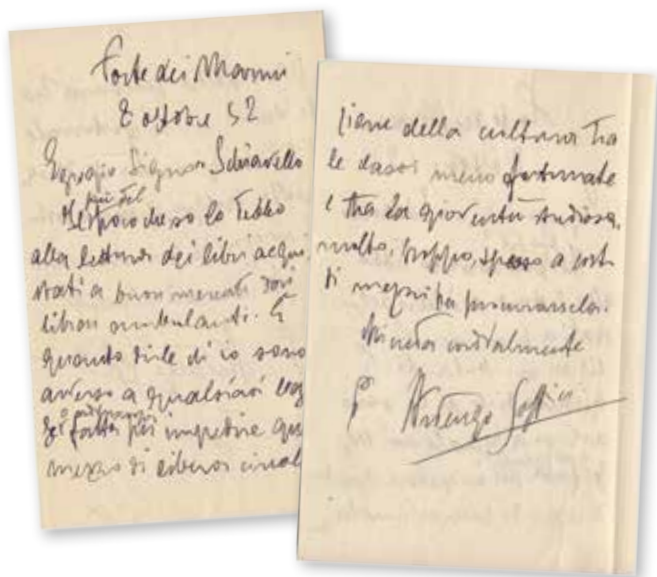 Forte dei Marmi
8 ottobre 52
Egregio Signor Schiavello
più del
Il poco che so lo debbo
alla lettura dei libri acqui
stati a buon mercato dai
librai ambulanti. E
quanto dirle ch'io sono
avverso a qualsiasi
o
fatta per impedire que
mezzo di libera circol
zione della cultura tra
le classi meno fortunate
e tra la gioventù studiosa,
molto, troppo, spesso a corto
di mezzi per procurarsela.
Mi creda cordialmente
Ardengo Soffici